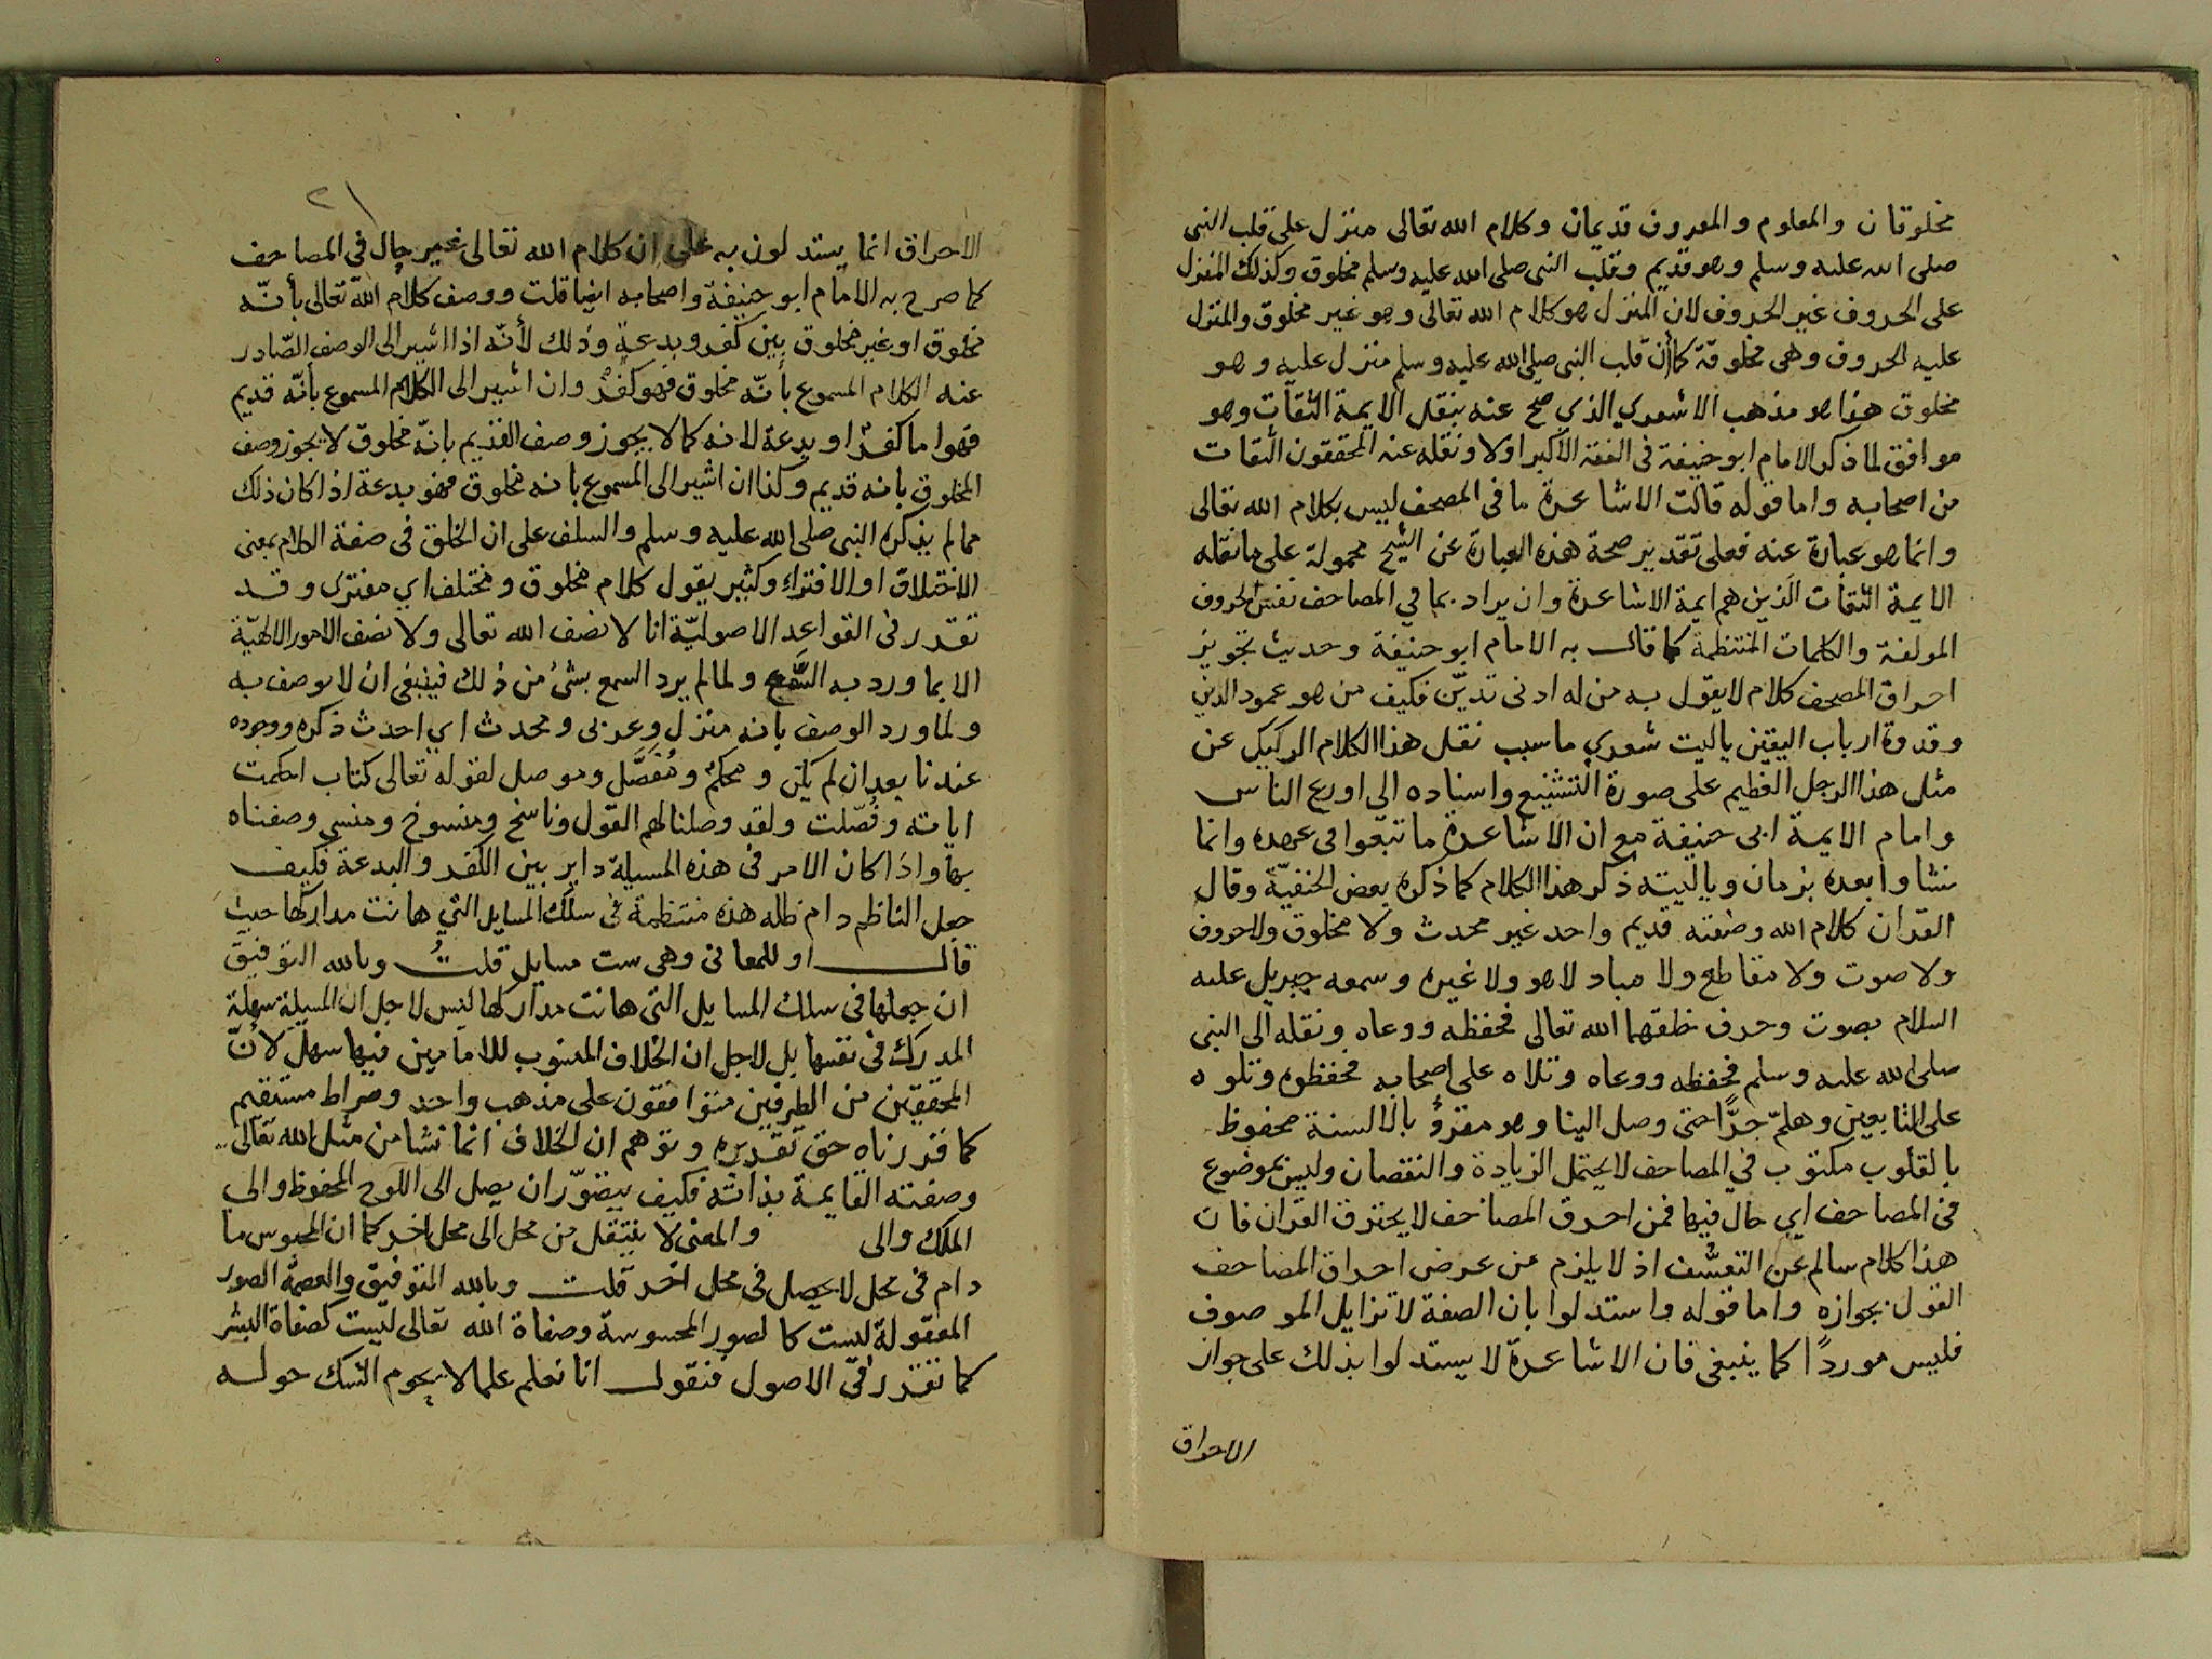 مخلوقان والمعلوم والمعروف قديمان وكلام الله تعالى منزل على قلب النبى
صلى الله عليه وسلم وهو قديم وقلب النبى صلى الله عليه وسلم مخلوق وكذلك المنزل
على الحروف غير الحروف لان المنزل هو كلام الله تعالى وهو غير مخلوق والمنزل
عليه الحروف وهى مخلوقة كما أن قلب النبى صلى الله عليه وسلم منزل عليه وهو
مخلوق هذا هو مذهب الاشعري الذي صح عنه بنقل الايمة الثقات وهو
موافق لما ذكر الامام ابو حنيفة فى الفقه الاكبر اولا ونقله عنه المحققون الثقات
من اصحابه واما قوله قالت الاشاعرة ما فى المصحف ليس بكلام الله تعالى
وانما هو عبارة عنه فعلى تقدير صحة هذه العبارة عن الشيخ محمولة على ما نقله
الايمة الثقات الذين هم ايمة الاشاعرة وان يراد بما في المصاحف نفس الحروف
المولفة والكلمات المنتظمة كما قال به الامام ابو حنيفة وحديث تجويز
احراق المصحف كلام لا يقول به من له ادنى تديّن فكيف من هو عمود الدين
وقدوة ارباب اليقين ياليت شعري ما سبب نقل هذا الكلام الركيك عن
مثل هذا الرجل العظيم على صورة التشنيع واسناده الى اورع الناس
وامام الايمة ابى حنيفة مع ان الاشاعرة ما تبعوا فى عهده وانما
نشاوا بعده بزمان وياليته ذكر هذا الكلام كما ذكره بعض الحنفيّة وقال
القران كلام الله وصفته قديم واحد غير محدث ولا مخلوق ولا حروف
ولا صوت ولا مقاطع ولا مباد لا هو ولا غيره وسمعه جبريل عليه
السلام بصوت وحرف خلقهما الله تعالى فحفظه ووعاه ونقله الى النبى
صلى الله عليه وسلم فحفظه ووعاه وتلاه على اصحابه فحفظوه وتلوه
على التابعين وهلمّ جرًّا حتى وصل الينا وهو مقرؤ بالالسنة محفوظ
بالقلوب مكتوب في المصاحف لا يحتمل الزيادة والنقصان وليس بموضوع
فى المصاحف اي حال فيها فمن احرق المصاحف لا يحترق القران فان
هذا كلام سالم عن التعسّف اذ لا يلزم من عرض احراق المصاحف
القول بجوازه واما قوله واستدلوا بان الصفة لا تزايل الموصوف
فليس موردًا كما ينبغى فان الاشاعرة لا يستدلوا بذلك على جواز
الاحراق
٢١
الاحراق انما يستدلون به على ان كلام الله تعالى غير حال فى المصاحف
كما صرح به الامام ابو حنيفة واصحابه ايضا قلت ووصف كلام الله تعالى بأنّه
مخلوق او غير مخلوق بين كفر وبدعة وذلك لأنّه اذا اشير الى الوصف الصّادر
عنه الكلام المسموع بأنّه مخلوق فهو كفرٌ وان اشير الى الكلام المسموع بأنّه قديم
فهو اما كفرٌ او بدعة لانه كما لا يجوز وصف القديم بانّه مخلوق لا يجوز وصف
المخلوق بانه قديم وكذا ان اشير الى المسموع بانه مخلوق فهو بدعة اذا كان ذلك
مما لم يذكره النبى صلى الله عليه وسلم والسلف على ان الخلق فى صفة الكلام بمعنى
الاختلاق او الافتراء وكثير يقول كلام مخلوق ومختلف اي مفترى وقد
تقدر فى القواعد الاصوليّة انا لا نصف الله تعالى ولا نصف الامور الالهيّة
الا بما ورد به السّمع ولما لم يرد السمع بشئ من ذلك فينبغى ان لا يوصف به
ولما ورد الوصف بانه منزل وعربى ومحدث اي احدث ذكره ووجوده
عندنا بعد ان لم يكن ومحكم ومُفصَّل وموصل لقوله تعالى كتاب احكمت
اياته وفُصّلت ولقد وصلنا لهم القول وناسخ ومنسوخ ومنسي وصفناه
بها واذا كان الامر فى هذه المسيلة داير بين الكفر والبدعة فكيف
جعل الناظم دام ظله هذه منتظمة فى سلك المسايل التي هانت مداركها حيث
قال او للمعانى وهى ست مسايل قلتُ وبالله التوفيق
ان جعلها فى سلك المسايل التى هانت مداركها ليس لاجل ان المسيلة سهلة
المدرك فى نفسها بل لاجل ان الخلاف المنسوب للامامين فيها سهل لأنّ
المحققين من الطرفين متوافقون على مذهب واحد وصراط مستقيم
كما قررناه حق تقديره وتوهم ان الخلاف انما نشا من مثل الله تعالى
وصفته القايمة بذاته فكيف يتصوّر ان يصل الى اللوح المحفوظ والى
الملك والى والمعنى لا ينتقل من محل الى محل اخر كما ان المحبوس ما
دام فى محل لا يحصل فى محل اخر قلت وبالله التوفيق والعصمة الصور
المعقولة ليست كالصور المحسوسة وصفاة الله تعالى ليست كصفاة البشر
كما تقدر فى الاصول فنقول انا نعلم علما لا يحوم الشك حوله